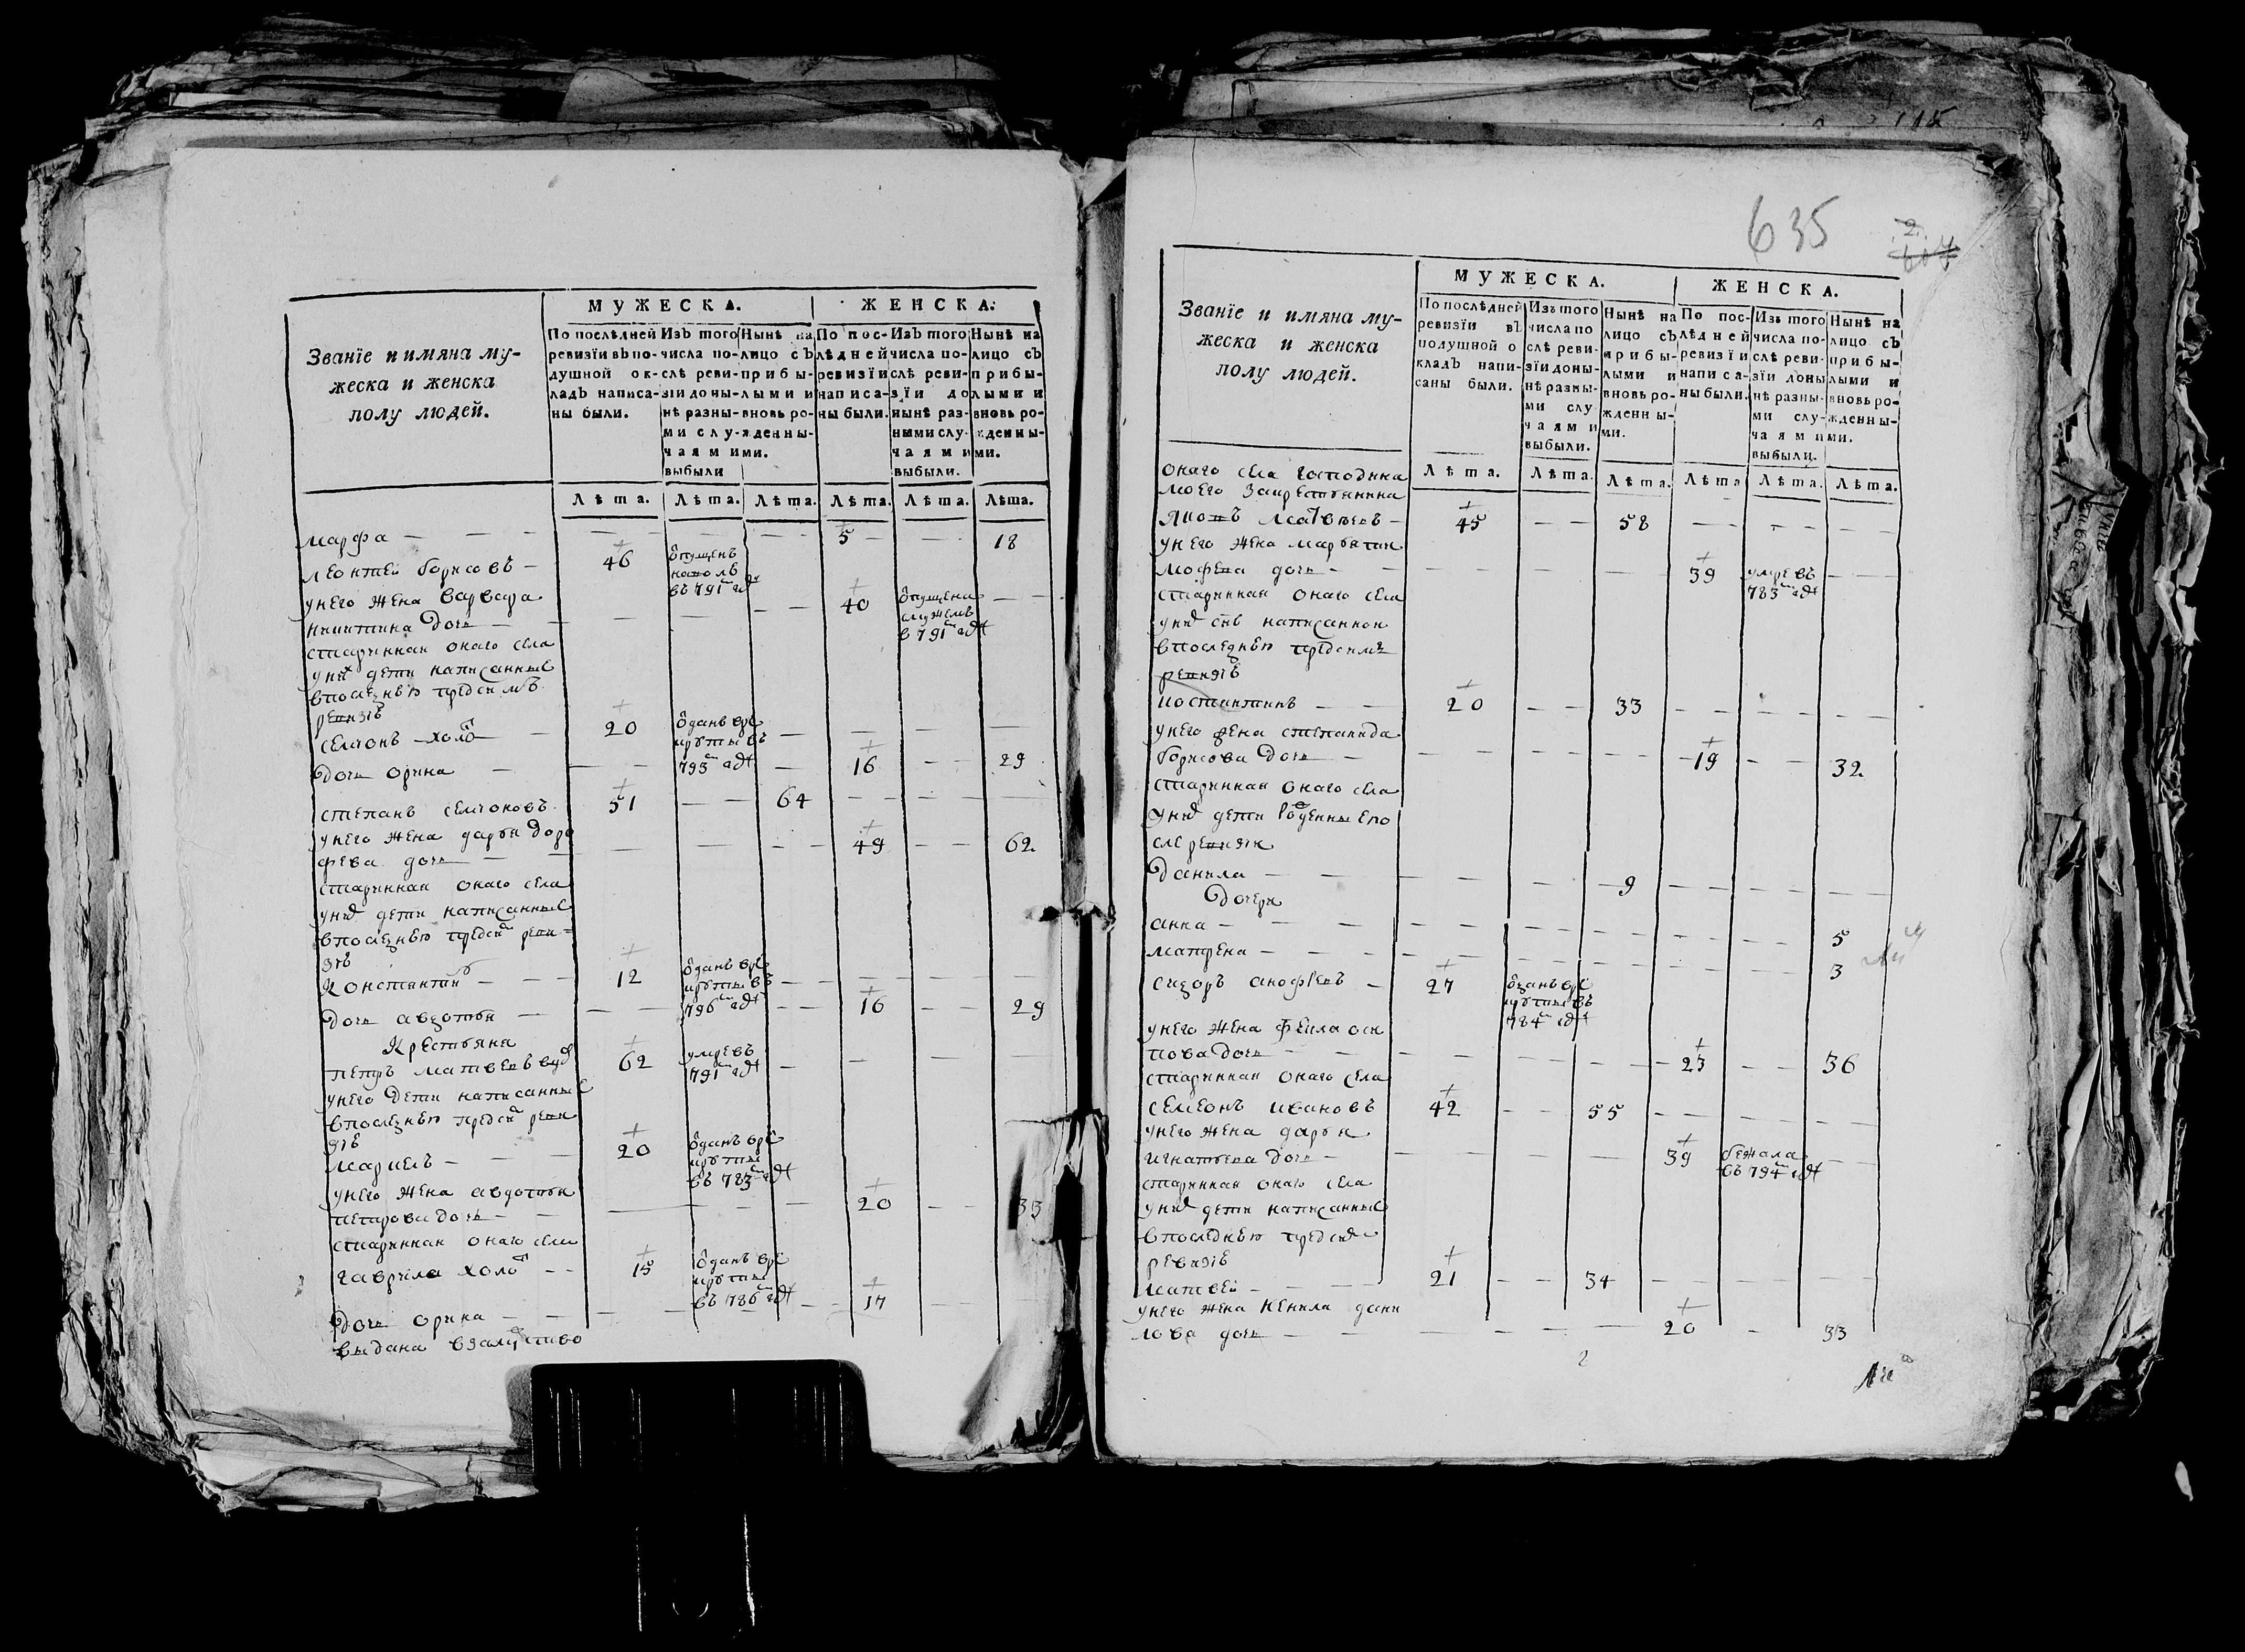 МУЖЕСКА.
ЖЕНСКА.
Званїе и имяна му-
жеска и женска
полу людей.
По послѣдней
ревизїи въ по-
душной ок-
ладъ написа-
ны были.
Изъ того
числа по-
слѣ реви-
зїи доны-
нѣ разны-
ми слу-
чаями
выбыли
Нынѣ на
лицо съ
прибы-
лыми и
вновь ро-
жденны-
ми.
По пос-
лѣдней
ревизїи
написа-
ны были.
Изъ того
числа по-
слѣ реви-
зїи до
нынѣ раз-
ными слу-
чаями
выбыли.
Нынѣ на
лицо съ
прибы-
лыми и
вновь ро-
жденны-
ми.
Лѣта. Лѣта. Лѣта. Лѣта. Лѣта. Лѣта.
марфа — 5 — 18
леонтей борисовъ — 46 отпущенъ
на волю
въ 791м годѣ
унего жена варвара
никитина дочь — 40 отпущена
смужемъ
в 791м годѣ
старинная оного села
уних дети написанные
впоследнею пред сим
ревизіе
семионъ холост 20 отданъ врe
круты въ
793м годѣ
дочь орина — 16 — 29
степанъ семионовъ 51 — 64
унего жена дарья доро
фева дочь — 49 — 62
старинная оного села
уних дети написанные
впоследнею пред сим реви=
зіе
Константин — 12 отданъ врe
круты въ
796м годѣ
дочь авдотья — 16 — 29
Крестьяне
петръ матвеевъ вдов 62 умре въ
791м годѣ
унего дети написанные
впоследнею пред сим реви
зіе
маркелъ — 20 отданъ врe
круты
въ 783м годѣ
унего жена авдотья
петрова дочь — 20 — 33
старинная оного села
гаврила холост — 15 отданъ врe
круты
въ 786м годѣ
дочь орина — 17
выдана взамужство
635
МУЖЕСКА.
ЖЕНСКА.
Званїе и имяна му-
жеска и женска
полу людей.
По послѣдней
ревизїи въ
подушной о
кладъ напи-
саны были.
Изъ того
числа по
слѣ реви-
зїи доны-
нѣ разны-
ми слу
чаями
выбыли.
Нынѣ на
лицо съ
прибы-
лыми и
вновь ро-
жденны-
ми.
По пос-
лѣдней
ревизїи
написа-
ны были.
Изъ того
числа по-
слѣ реви-
зїи доны
нѣ разны-
ми слу-
чаями
выбыли.
Нынѣ на
лицо съ
прибы-
лыми и
вновь ро-
жденны-
ми.
Лѣта. Лѣта. Лѣта. Лѣта Лѣта. Лѣта.
оного села господина
моего за крестьянина
матвеевъ — 45 — 58
унего жена марья тим
мофеева дочь — 39 умре въ
783м годѣ
старинная оного села
уних сынъ написанной
впоследнею пред симъ
ревизіе
костинтинъ — 20 — 33
унего жена степанида
борисова дочь — 19 — 32
старинная оного села
уних дети рожденные по
сле ревизіи
данила — 9
дочери
анна — 5
матрена — 3
сидоръ анофревъ — 27 отданъ врe
круты въ
784м годѣ
унего жена фекла оси
пова дочь — 23 — 36
старинная оного села
семеонъ ивановъ 42 — 55
унего жена дарья
игнатьева дочь — 39 бежала
въ 794м годѣ
старинная оного села
уних дети написанные
впоследнею пред сим
ревизіе
матвей — 21 — 34
унего жена ненила дани
лова дочь — 20 — 33